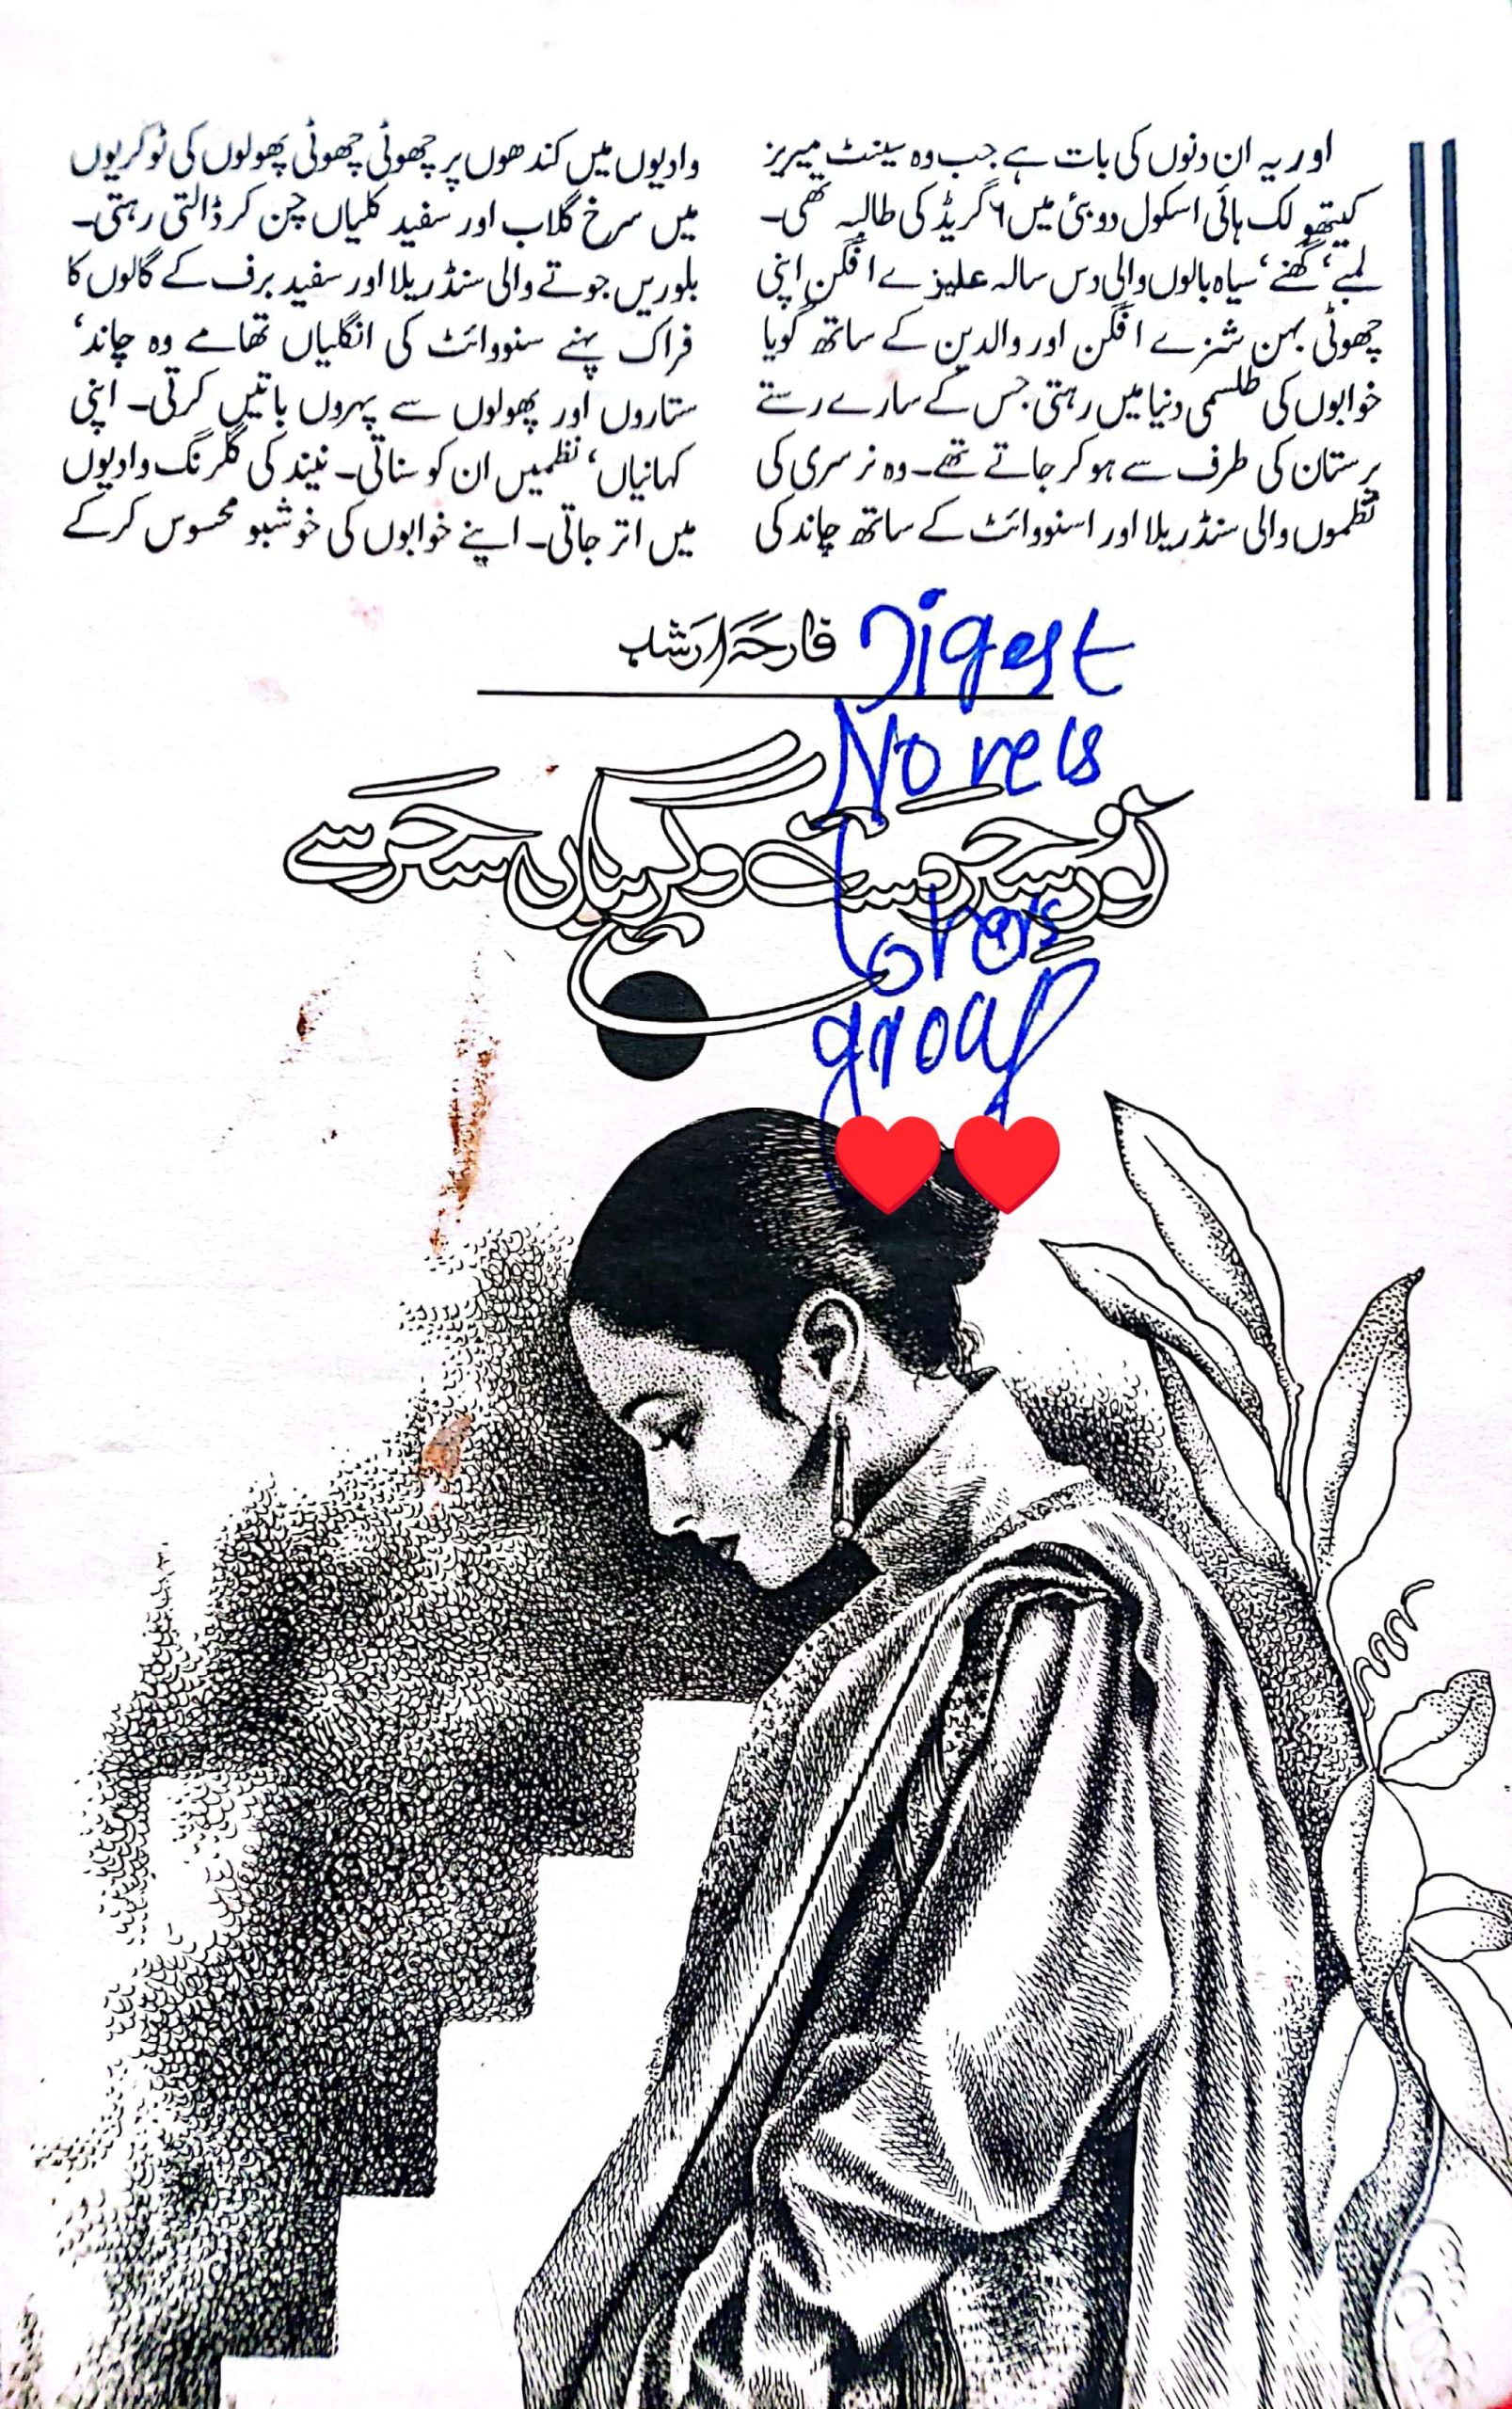 اور یہ ان دنوں کی بات ہے جب وہ سینٹ میریز
کیتھو لک ہائی اسکول دوبئی میں ۶ گریڈ کی طالبہ تھی۔
لمبے، گھنے، سیاہ بالوں والی دس سالہ علیزے افگن اپنی
چھوٹی بہن شنزے افگن اور والدین کے ساتھ گویا
خوابوں کی طلسمی دنیا میں رہتی جس کے سارے رستے
پرستان کی طرف سے ہو کر جاتے تھے۔ وہ نرسری کی
نظموں والی سنڈریلا اور اسنووائٹ کے ساتھ چاند کی
وادیوں میں کندھوں پر چھوٹی چھوٹی پھولوں کی ٹوکریوں
میں سرخ گلاب اور سفید کلیاں چن کر ڈالتی رہتی۔
بلوریں جوتے والی سنڈریلا اور سفید برف کے گالوں کا
فراک پہنے سنووائٹ کی انگلیاں تھامے وہ چاند،
ستاروں اور پھولوں سے پہروں باتیں کرتی۔ اپنی
کہانیاں، نظمیں ان کو سناتی۔ نیند کی گلرنگ وادیوں
میں اتر جاتی۔ اپنے خوابوں کی خوشبو محسوس کرکے
فارحہ ارشب
Digest
Novels
Lovers
group
❤❤